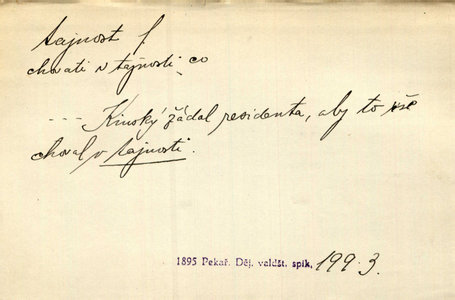 tajnost f
chovati v tajnosti co
--- Kinský žádal residenta, aby to vše
choval v tajnosti.
1895 Pekař. Děj. valdšt. spik. 199.3.